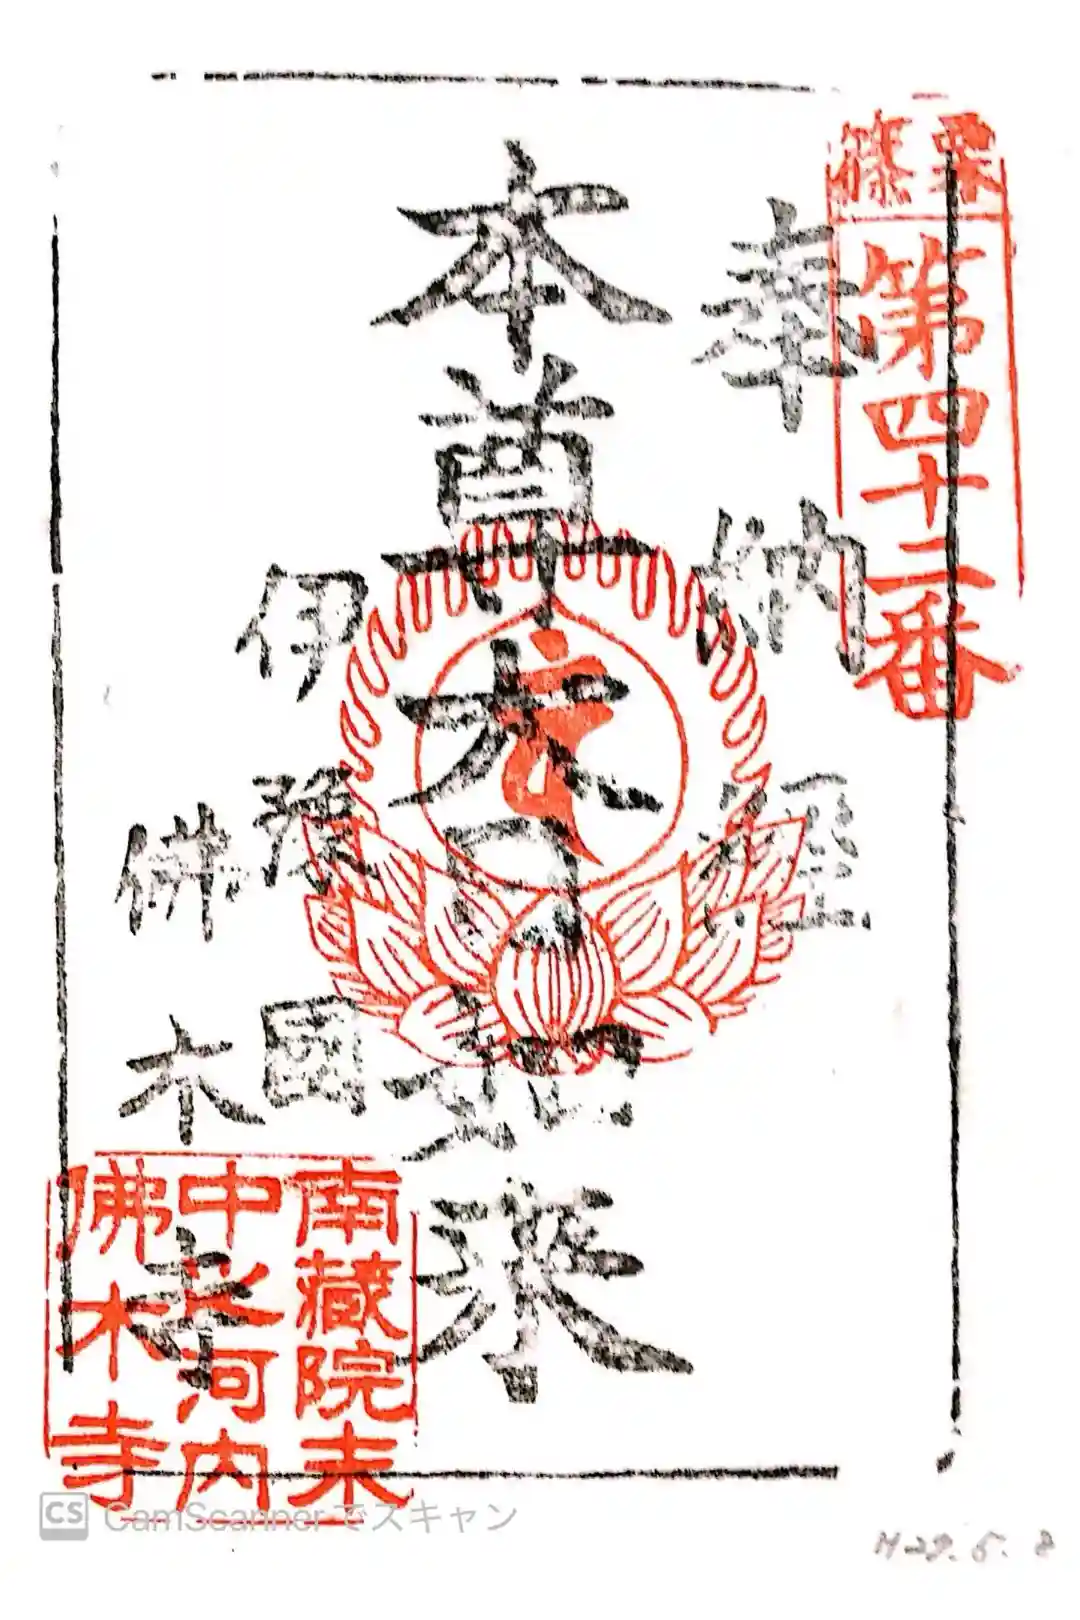 篠栗
第四十二番
奉納経
本尊大日如来
伊豫國
佛木寺
南藏院末
中之河内
佛木寺
CS CamScannerでスキャン